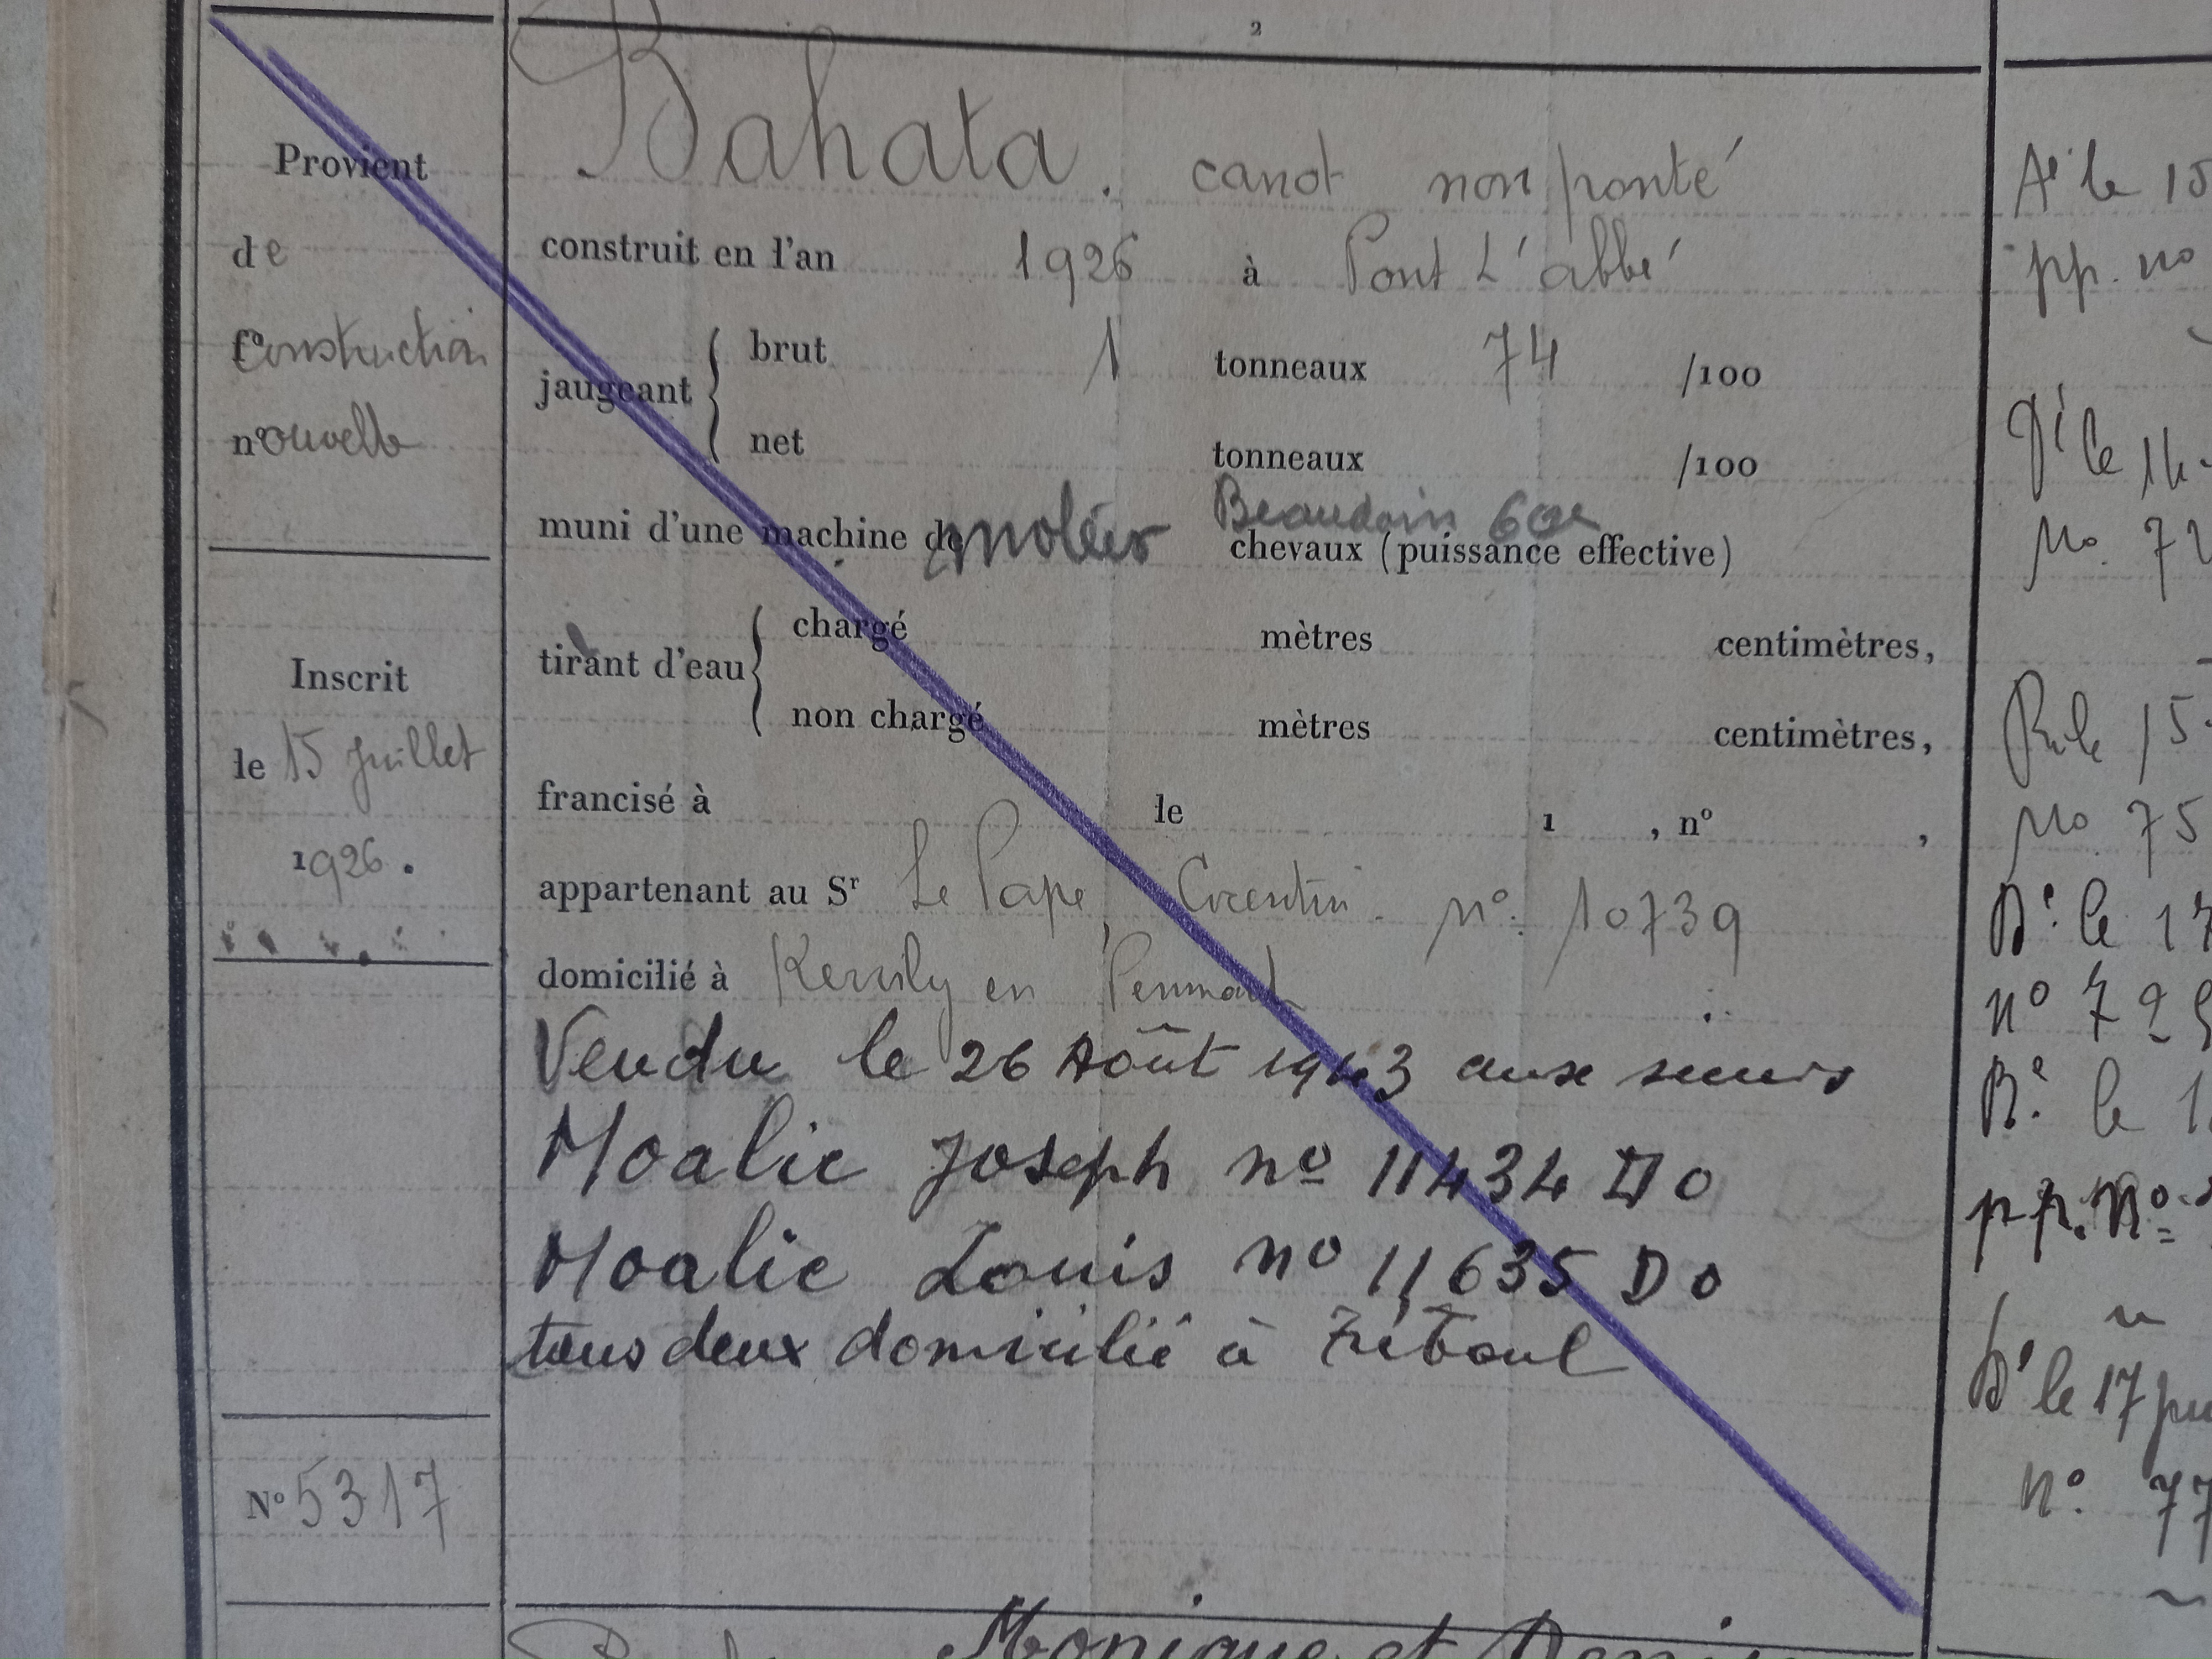 2
Bahata. canot non ponté
Provient
de
Construction
nouvelle
construit en l'an 1926 à Pont L'abbé
jaugeant
brut 1 tonneaux 74 /100
net tonneaux /100
Beaudoin
muni d'une machine de chevaux (puissance effective)
tirant d'eau
chargé mètres centimètres,
non chargé mètres centimètres,
Inscrit
le 15 juillet
1926.
francisé à le 1 , n° ,
appartenant au Sr Le Pape, Corentin. n°: 10739
domicilié à en Penmarch
Vendu le 26 Août 1943 aux sieurs
Moalic Joseph no 11434 Do
Moalic Louis no 11635 Do
tous deux domicilié à Tréboul
N° 5317
Monique et
le 15
pp. no
le 14
No. 72
le 15
No 75
Dé. le 17
no 729
Ré. le 1
pp. No.
Dé le 17
N°. 77